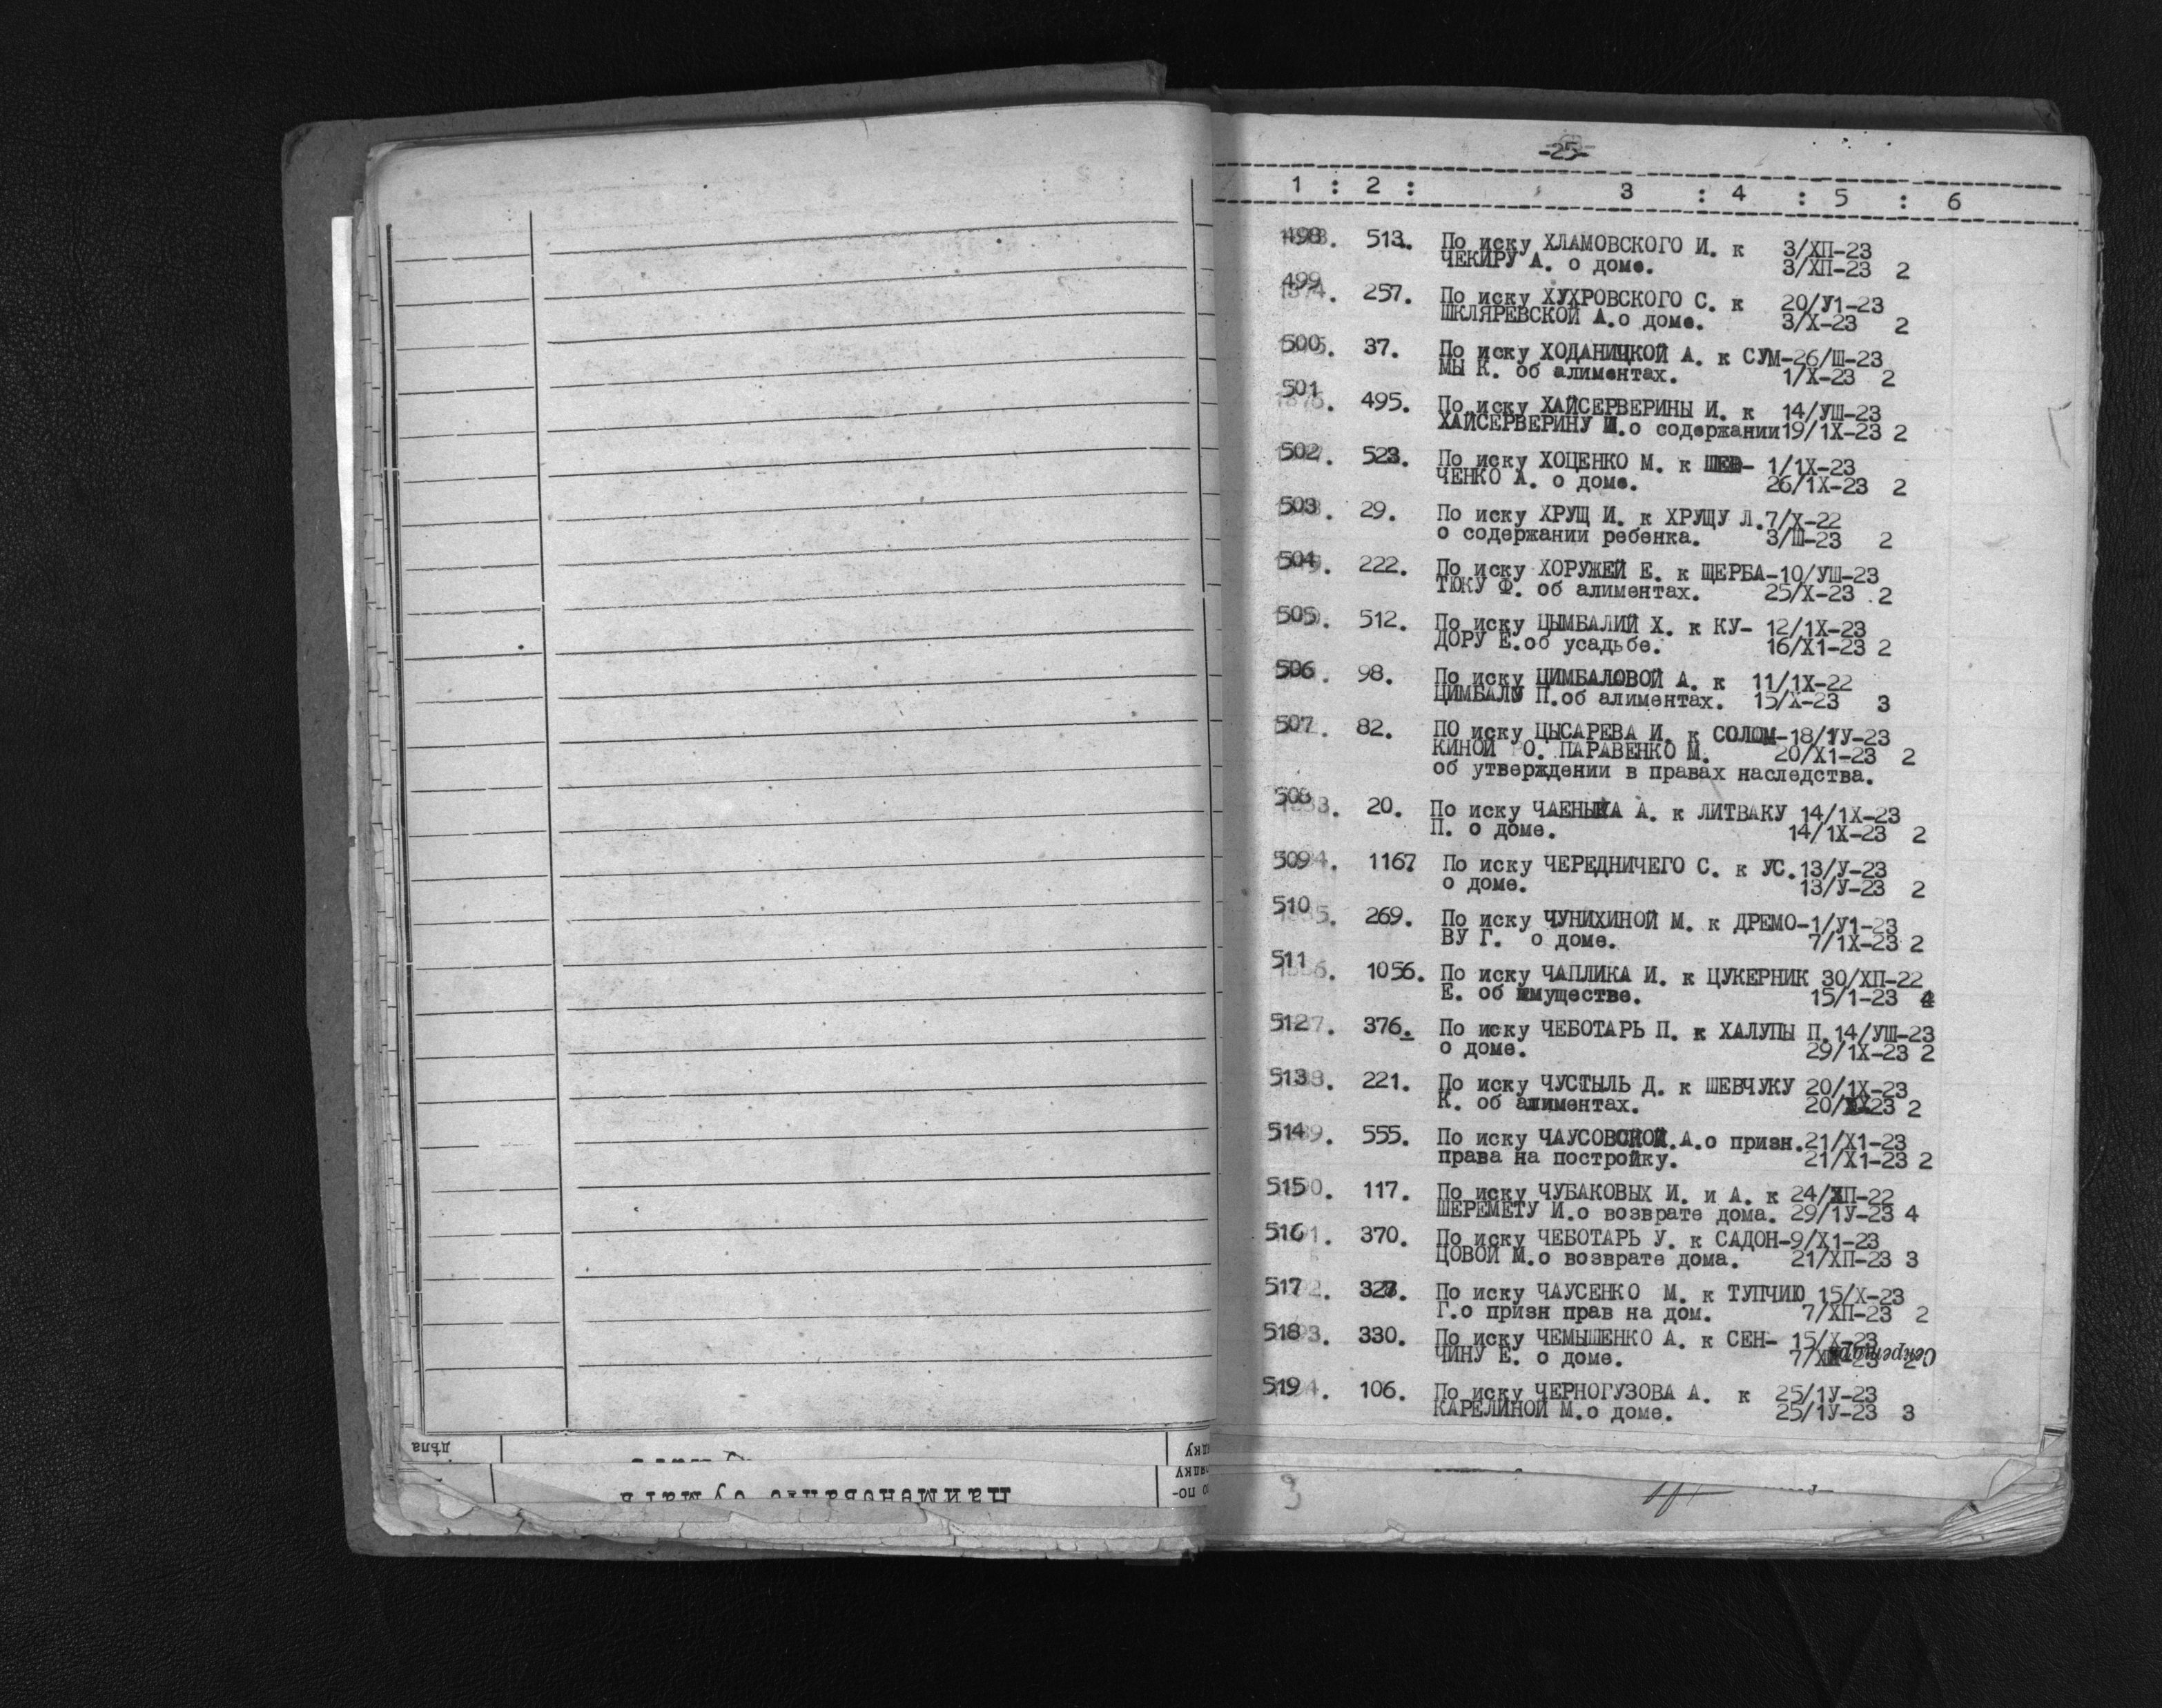 -25-
1 : 2 : 3 : 4 : 5 : 6
498. 513. По иску ХЛАМОВСКОГО И. к 3/ХП-23
ЧЕКИРУ А. о доме. 3/ХП-23 2
499. 257. По иску ХУХРОВСКОГО С. к 20/У1-23
ШКЛЯРЕВСКОЙ А.о доме. 3/Х-23 2
500. 37. По иску ХОДАНИЦКОЙ А. к СУМ-26/Ш-23
МЫ К. об алиментах. 1/Х-23 2
501. 495. По иску ХАЙСЕРВЕРИНЫ И. к 14/УШ-23
ХАЙСЕРВЕРИНУ И.о содержании19/1Х-23 2
502. 523. По иску ХОЦЕНКО М. к ШЕВ- 1/1Х-23
ЧЕНКО А. о доме. 26/1Х-23 2
503. 29. По иску ХРУЩ И. к ХРУЩУ Л.7/Х-22
о содержании ребенка. 3/Ш-23 2
504. 222. По иску ХОРУЖЕЙ Е. к ЩЕРБА-10/УШ-23
ТЮКУ Ф. об алиментах. 25/Х-23 2
505. 512. По иску ЦЫМБАЛИЙ Х. к КУ- 12/1Х-23
ДОРУ Е.об усадьбе. 16/Х1-23 2
506. 98. По иску ЦИМБАЛОВОЙ А. к 11/1Х-22
ЦИМБАЛУ П.об алиментах. 15/Х-23 3
507. 82. ПО иску ЦЫСАРЕВА И. к СОЛОМ-18/1У-23
КИНОЙ О. ПАРАВЕНКО М. 20/Х1-23 2
об утверждении в правах наследства.
508. 20. По иску ЧАЕНЫКА А. к ЛИТВАКУ 14/1Х-23
П. о доме. 14/1Х-23 2
509. 1167 По иску ЧЕРЕДНИЧЕГО С. к УС.13/У-23
о доме. 13/У-23 2
510. 269. По иску ЧУНИХИНОЙ М. к ДРЕМО-1/У1-23
ВУ Г. о доме. 7/1Х-23 2
511. 1056. По иску ЧАПЛИКА И. к ЦУКЕРНИК 30/ХП-22
Е. об имуществе. 15/1-23 4
512. 376. По иску ЧЕБОТАРЬ П. к ХАЛУПЫ П.14/УШ-23
о доме. 29/1Х-23 2
513. 221. По иску ЧУСТЫЛЬ Д. к ШЕВЧУКУ 20/1Х-23
К. об алиментах. 20/ 23 2
514. 555. По иску ЧАУСОВСКОЙ.А.о призн.21/Х1-23
права на постройку. 21/Х1-23 2
515. 117. По иску ЧУБАКОВЫХ И. и А. к 24/ХП-22
ШЕРЕМЕТУ И.о возврате дома. 29/1У-23 4
516. 370. По иску ЧЕБОТАРЬ У. к САДОН-9/Х1-23
ЦОВОЙ М.о возврате дома. 21/ХП-23 3
517. 328. По иску ЧАУСЕНКО М. к ТУПЧИЮ 15/Х-23
Г.о призн прав на дом. 7/ХП-23 2
518. 330. По иску ЧЕМЫШЕНКО А. к СЕН- 15/Х-23
ЧИНУ Е. о доме. 7/ХП-23 2
Секретарь
519. 106. По иску ЧЕРНОГУЗОВА А. к 25/1У-23
КАРЕЛИНОЙ М.о доме. 25/1У-23 3
дѣла
наименованіе бумагъ